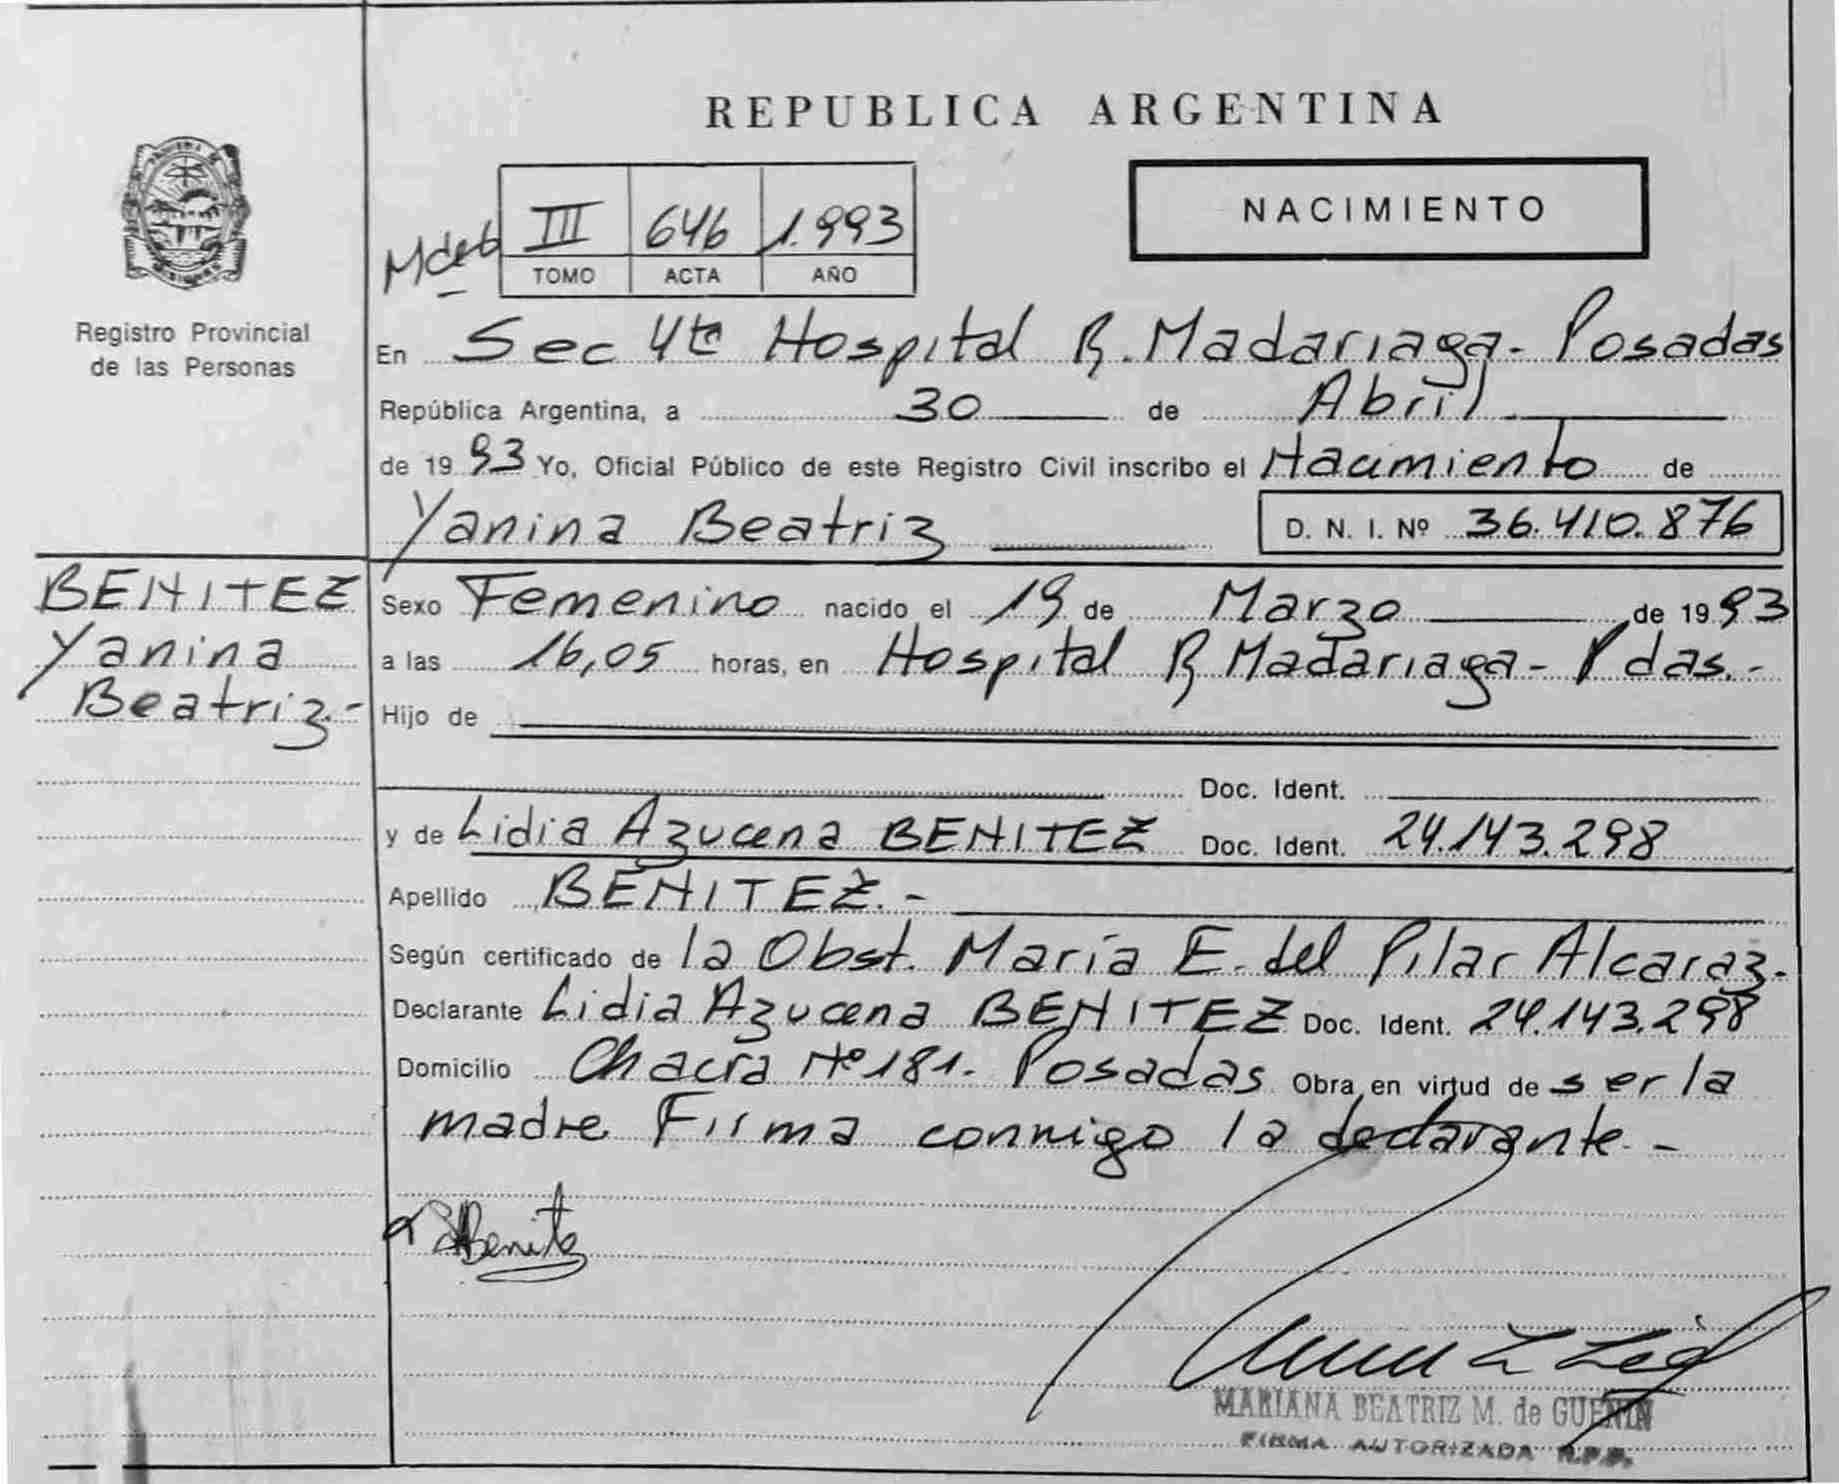 REPUBLICA ARGENTINA
NACIMIENTO
III 646 1.993
TOMO ACTA AÑO
Registro Provincial
de las Personas
En Sec 4ta Hospital R. Madariaga - Posadas
República Argentina, a 30 de Abril
de 1993 Yo, Oficial Público de este Registro Civil inscribo el Nacimiento de
Yanina Beatriz D. N. I. Nº 36.410.876
BENITEZ
Yanina
Beatriz.-
Sexo Femenino nacido el 19 de Marzo de 1993
a las 16,05 horas, en Hospital R Madariaga - Pdas.-
Hijo de
Doc. Ident.
y de Lidia Azucena BENITEZ Doc. Ident. 24.143.298
Apellido BENITEZ.-
Según certificado de la Obst. María E. del Pilar Alcaraz.
Declarante Lidia Azucena BENITEZ Doc. Ident. 24.143.298
Domicilio Chacra Nº 181. Posadas Obra en virtud de ser la
madre Firma conmigo la declarante.-
MARIANA BEATRIZ M. de GUENIN
FIRMA AUTORIZADA R.P.P.